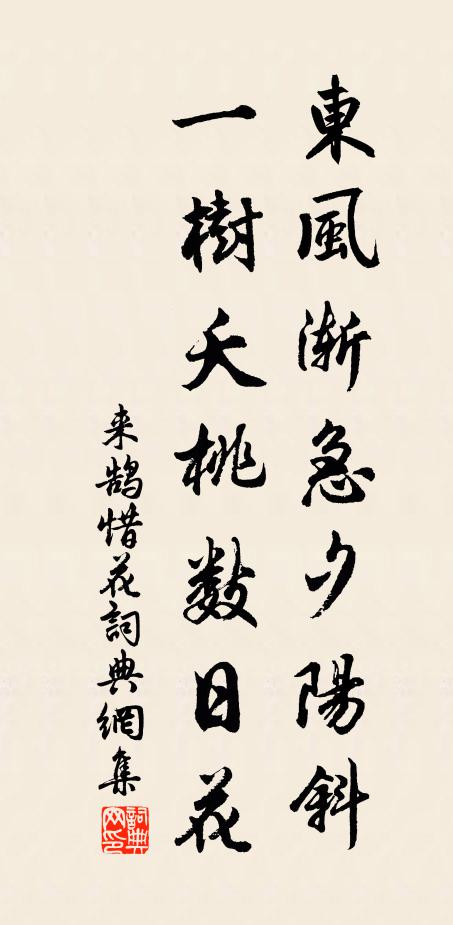 東風漸急夕陽斜
一樹夭桃數日花
来鹄惜花詞典網集
詞典网印